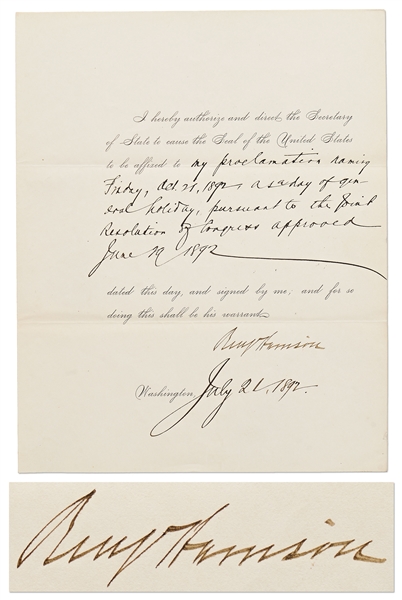 I hereby authorize and direct the Secretary
of State to cause the Seal of the United States
to be affixed to my proclamation naming
Friday, Oct. 21, 1892, as a day of gen-
eral holiday, pursuant to the Joint
Resolution of Congress approved
June 29, 1892
dated this day, and signed by me; and for so
doing this shall be his warrant.
Benj Harrison
Washington, July 21, 1892.
Benj Harrison